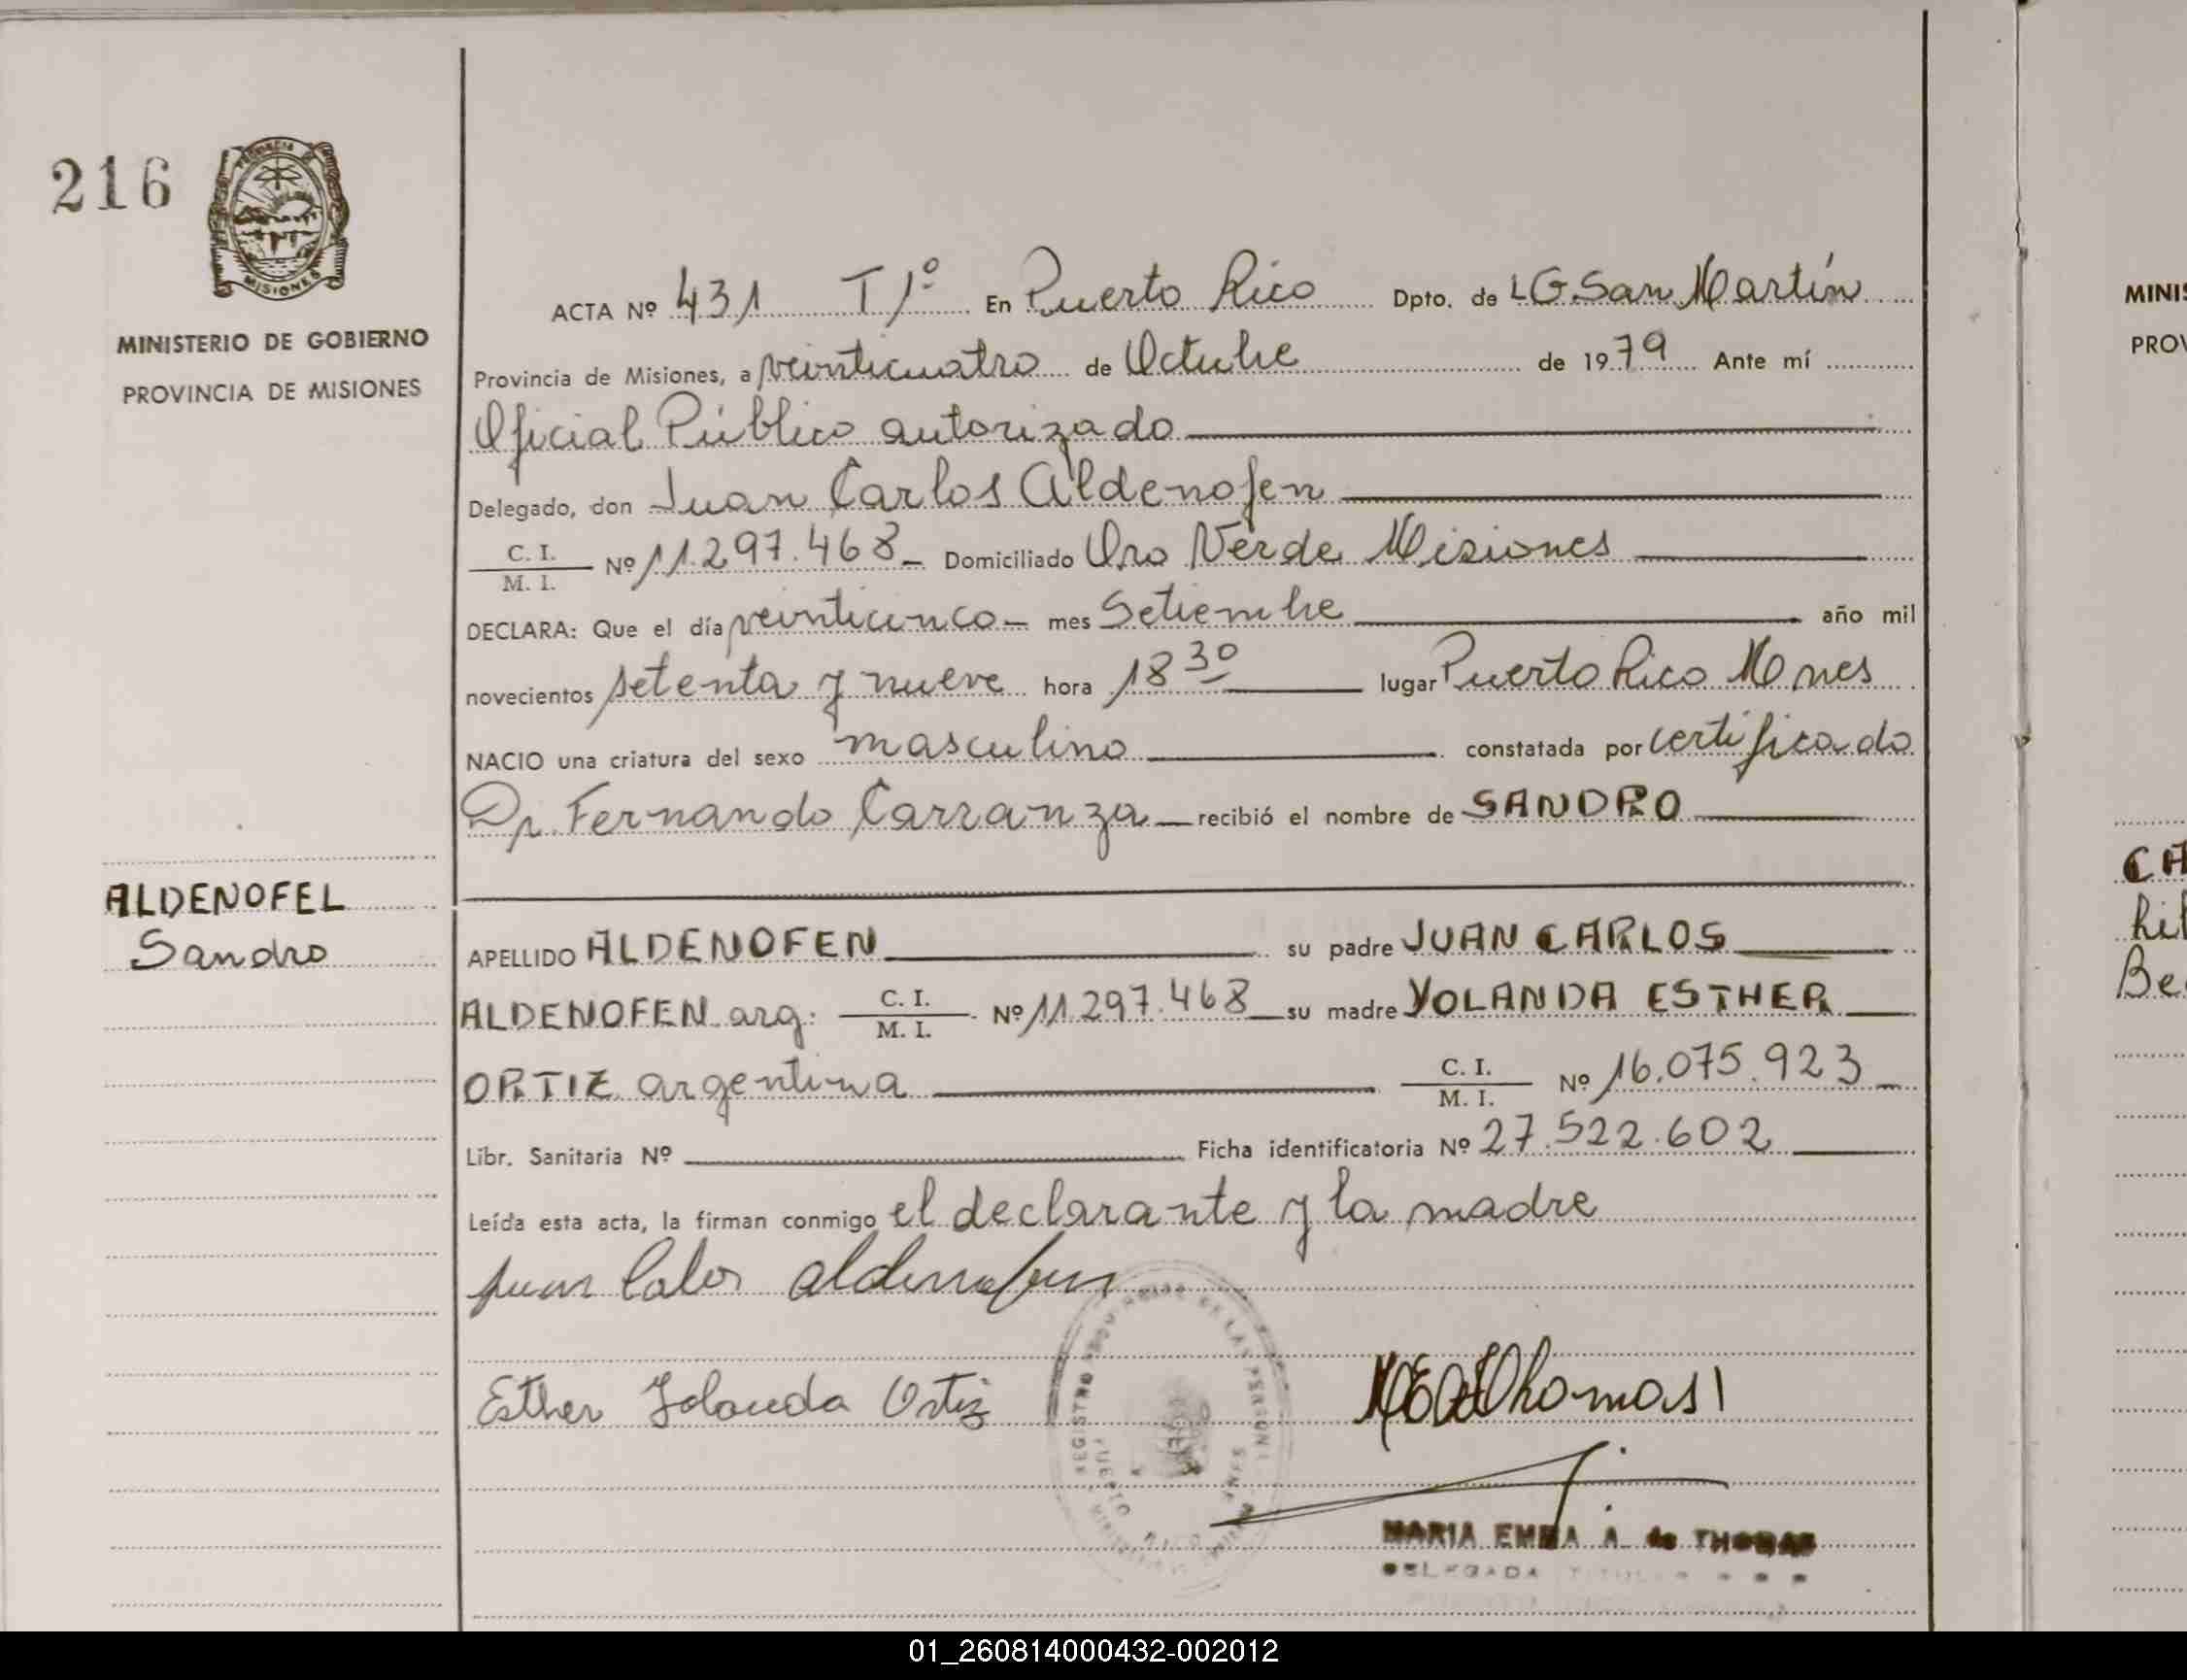 216
PROVINCIA DE
MISIONES
MINISTERIO DE GOBIERNO
PROVINCIA DE MISIONES
ALDENOFEL
Sandro
ACTA Nº 431 T 1º En Puerto Rico Dpto. de LG San Martín
Provincia de Misiones, a veinticuatro de Octubre de 1979 Ante mí
Oficial Público autorizado
Delegado, don Juan Carlos Aldenofen
C. I.
M. I. Nº 11.297.468 Domiciliado Oro Verde Misiones
DECLARA: Que el día veinticinco mes Setiembre año mil
novecientos setenta y nueve hora 18 30 lugar Puerto Rico Mnes
NACIO una criatura del sexo masculino constatada por certificado
Dr. Fernando Carranza recibió el nombre de SANDRO
APELLIDO ALDENOFEN su padre JUAN CARLOS
ALDENOFEN arg: C. I. M. I. Nº 11.297.468 su madre YOLANDA ESTHER
ORTIZ argentina C. I. M. I. Nº 16.075.923
Libr. Sanitaria Nº Ficha identificatoria Nº 27.522.602
Leída esta acta, la firman conmigo el declarante y la madre
Juan Calos aldenofen
Esther Yolanda Ortiz
REGISTRO DE LAS PERSONAS
PUERTO RICO
MARIA EMMA A. de THOMAS
DELEGADA TITULAR
MINIS
PROV
CA
Lil
Be
01_260814000432-002012